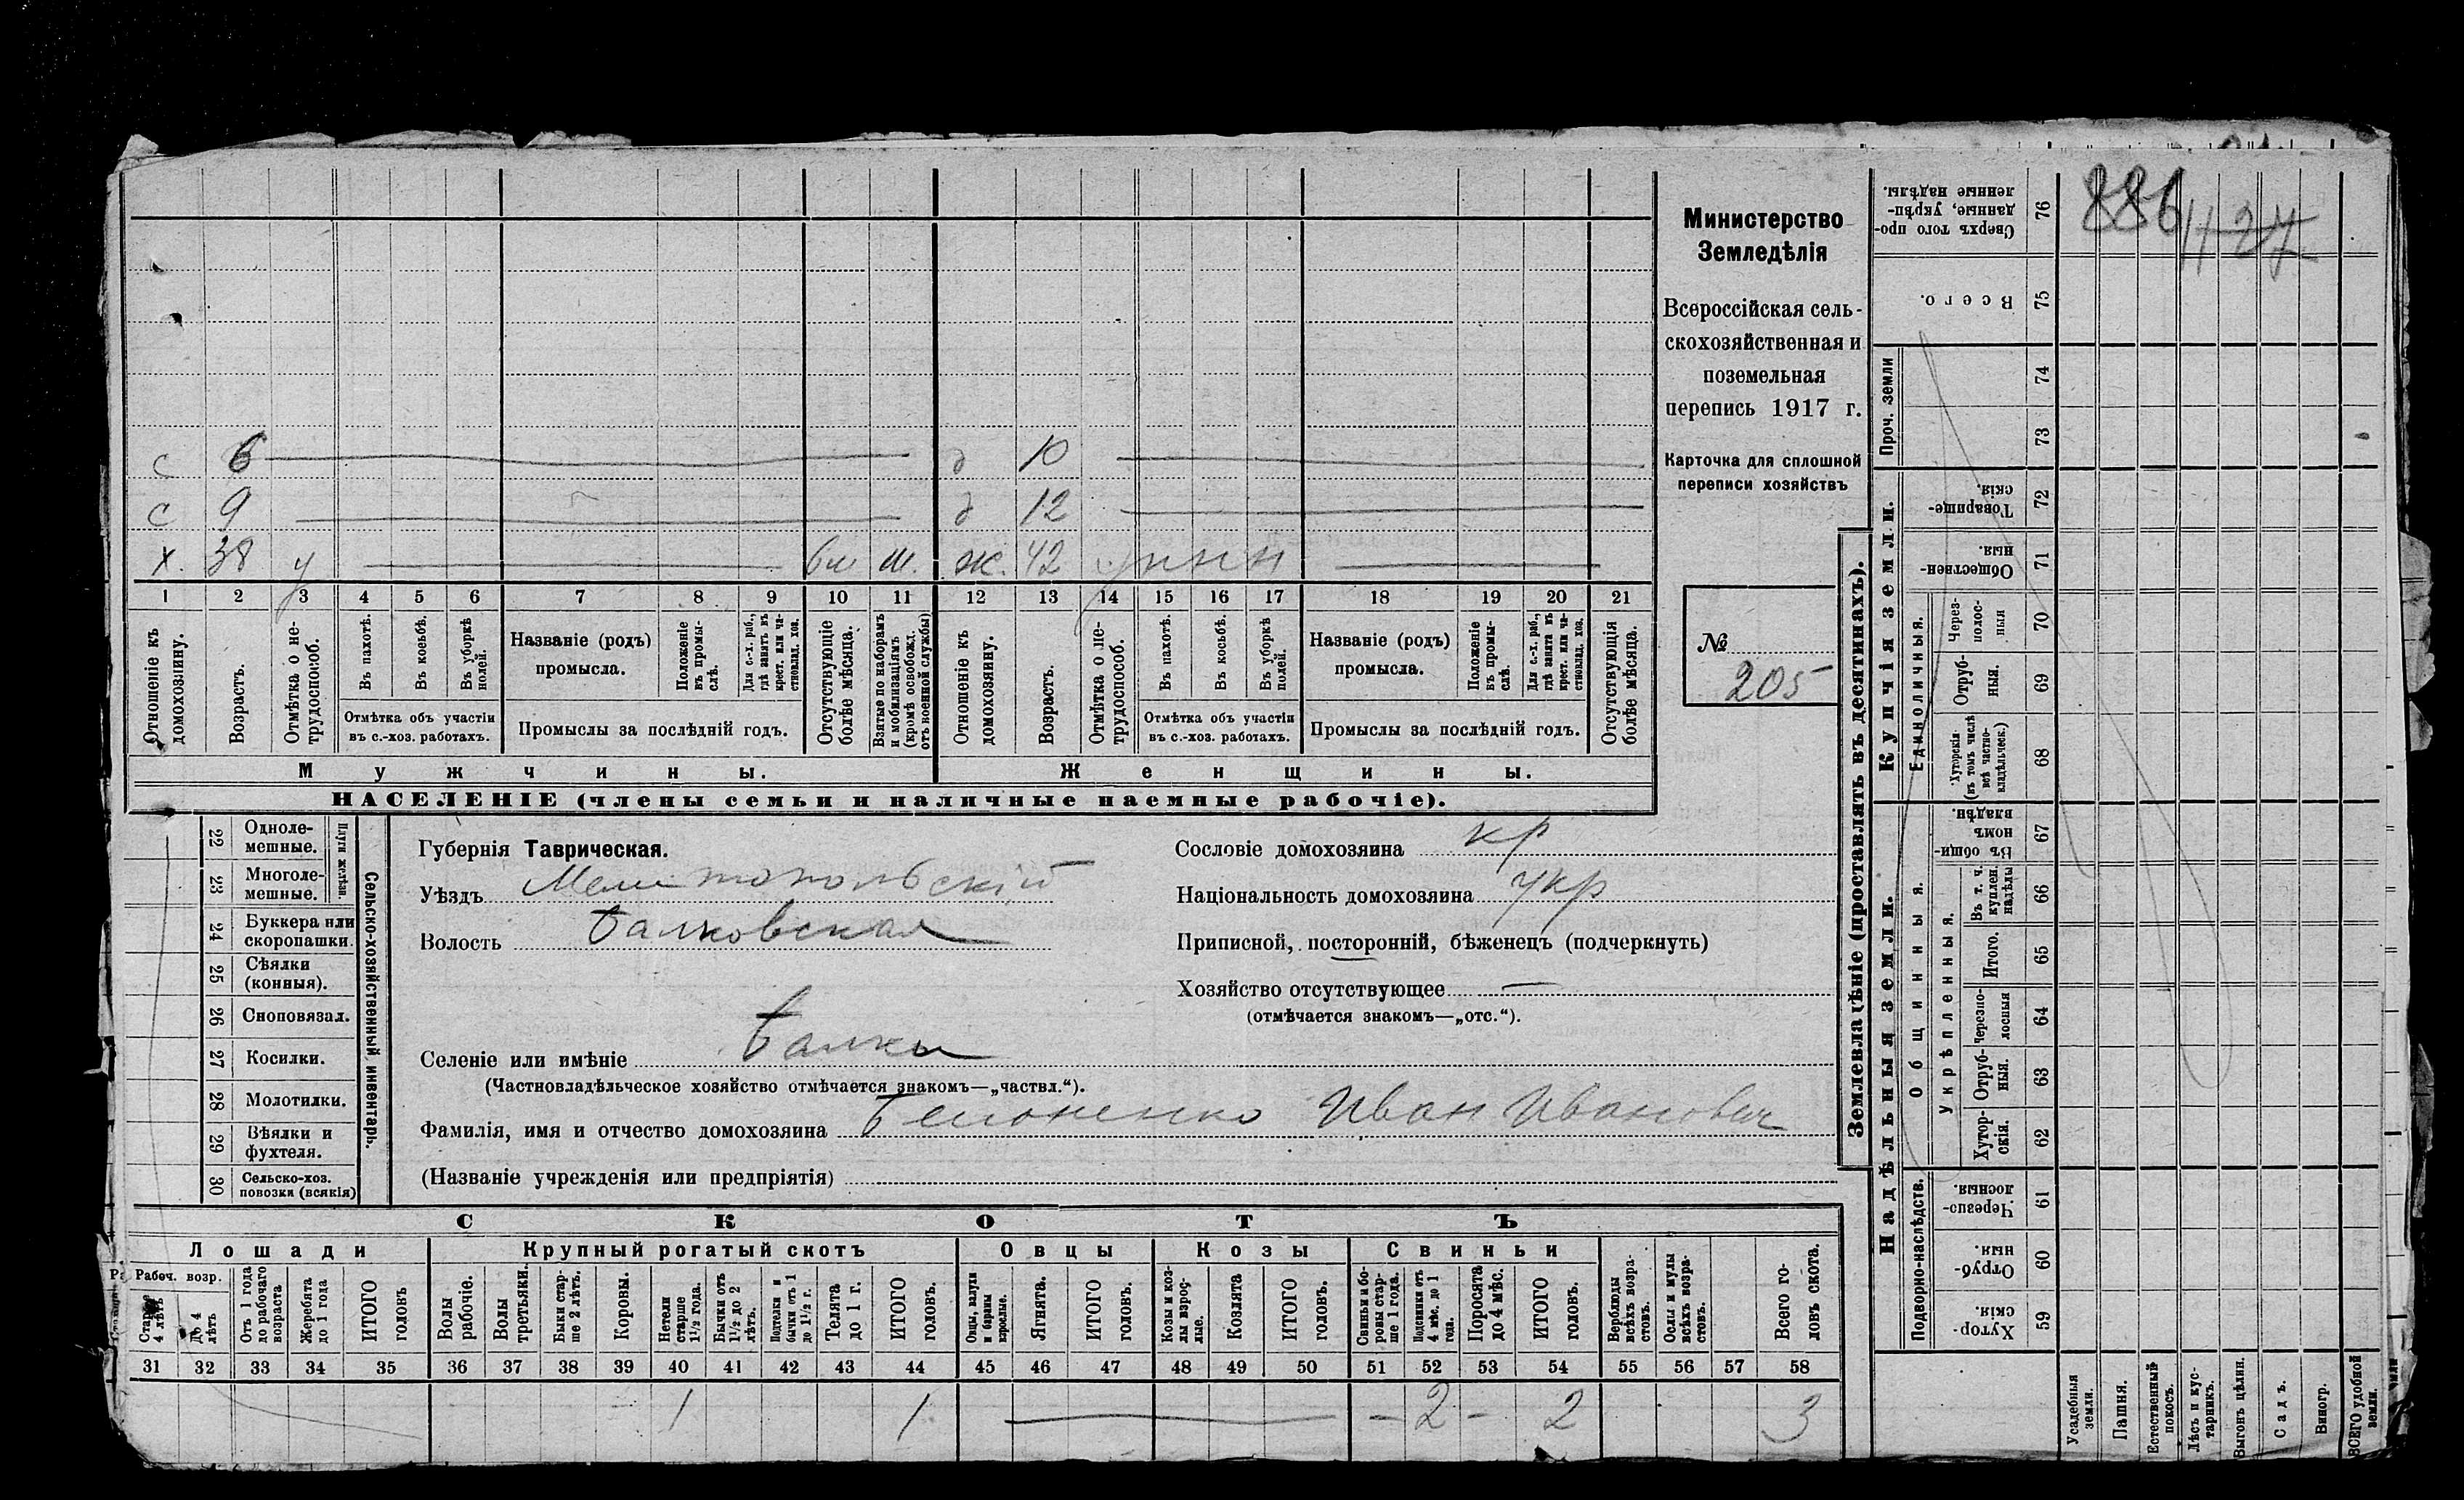 886
1127
с 6 д 10
с 9 д 12
х. 38 у 6м м. ж. 42 у п н н
1 2 3 4 5 6 7 8 9 10 11 12 13 14 15 16 17 18 19 20 21
Отношеніе къ домохозяину.
Возрастъ.
Отмѣтка о не-трудоспособ.
Въ пахотѣ.
Въ косьбѣ.
Въ уборкѣ полей.
Отмѣтка объ участіи
въ с.-хоз. работахъ.
Названіе (родъ)
промысла.
Положеніе въ промы-слѣ.
Для с.-х. раб., гдѣ занятъ въ крест. или ча-стновлад. хоз.
Промыслы за послѣдній годъ.
Отсутствующіе болѣе мѣсяца.
Взятые по наборамъ и мобилизаціямъ (кромѣ освобожд. отъ военной службы)
Отношеніе къ домохозяину.
Возрастъ.
Отмѣтка о не-трудоспособ.
Въ пахотѣ.
Въ косьбѣ.
Въ уборкѣ полей.
Отмѣтка объ участіи
въ с.-хоз. работахъ.
Названіе (родъ)
промысла.
Положеніе въ промы-слѣ.
Для с.-х. раб., гдѣ занята въ крест. или ча-стновлад. хоз.
Промыслы за послѣдній годъ.
Отсутствующія болѣе мѣсяца.
Мужчины. Женщины.
НАСЕЛЕНІЕ (члены семьи и наличные наемные рабочіе).
Министерство
Земледѣлія
Всероссійская сель-
скохозяйственная и
поземельная
перепись 1917 г.
Карточка для сплошной
переписи хозяйствъ
№
205
22 Одноле-мешные.
23 Многоле-мешные.
Плуги желѣзн.
24 Буккера или скоропашки.
25 Сѣялки (конныя).
26 Сноповязал.
27 Косилки.
28 Молотилки.
29 Вѣялки и фухтеля.
30 Сельско-хоз. повозки (всякія)
Сельско-хозяйственный инвентарь.
Губернія Таврическая.
Уѣздъ Мелитопольскій
Волость Балковская
Селеніе или имѣніе Балки
(Частновладѣльческое хозяйство отмѣчается знакомъ—„частвл.“).
Фамилія, имя и отчество домохозяина Белоненко Иван Иванович
(Названіе учрежденія или предпріятія)
Сословіе домохозяина кр
Національность домохозяина укр
Приписной, посторонній, бѣженецъ (подчеркнуть)
Хозяйство отсутствующее —
(отмѣчается знакомъ—„отс.“).
СКОТЪ
Лошади Крупный рогатый скотъ Овцы Козы Свиньи
Рабоч. возр.
Старше 4 лѣтъ
До 4 лѣтъ
Отъ 1 года до рабочаго возраста
Жеребята до 1 года
ИТОГО головъ
Волы рабочіе.
Волы третьяки.
Быки стар-ше 2 лѣтъ.
Коровы.
Нетели старше 1½ года.
Бычки отъ 1½ до 2 лѣтъ.
Подтелки и бычки отъ 1 до 1½ г.
Телята до 1 г.
ИТОГО головъ.
Овцы, валухи и бараны взрослые.
Ягнята.
ИТОГО головъ.
Козы и коз-лы взрос-лые.
Козлята
ИТОГО головъ.
Свиньи и бо-ровы стар-ше 1 года.
Подсвинки отъ 4 мѣс. до 1 года.
Поросята до 4 мѣс.
ИТОГО головъ.
Верблюды всѣхъ возра-стовъ.
Ослы и мулы всѣхъ возра-стовъ.
Всего го-ловъ скота.
31 32 33 34 35 36 37 38 39 40 41 42 43 44 45 46 47 48 49 50 51 52 53 54 55 56 57 58
1 1 — – 2 – 2 3
Землевладѣніе (проставлять въ десятинахъ).
Купчія земли.
Надѣльныя земли.
Сверхъ того про-данные, укрѣп-ленные надѣлы. 76
Всего. 75
Проч. земли 74 73
Товарище-скія. 72
Обществен-ныя. 71
Единоличныя.
Через-полос-ныя 70
Отруб-ныя. 69
Хуторскія (въ томъ числѣ всѣ частно-владѣльческ.) 68
Общинныя.
Въ общин-номъ владѣн. 67
Укрѣпленныя.
Въ т. ч. куплен. надѣлы 66
Итого. 65
Черезпо-лосныя 64
Отруб-ныя. 63
Хутор-скія. 62
Подворно-наслѣдств.
Черезпо-лосныя. 61
Отруб-ныя. 60
Хутор-скія. 59
Усадебныя земли.
Пашня.
Естественный покосъ.
Лѣсъ и кус-тарникъ.
Выгонъ цѣлин.
Садъ.
Виногр.
ВСЕГО удобной земли.